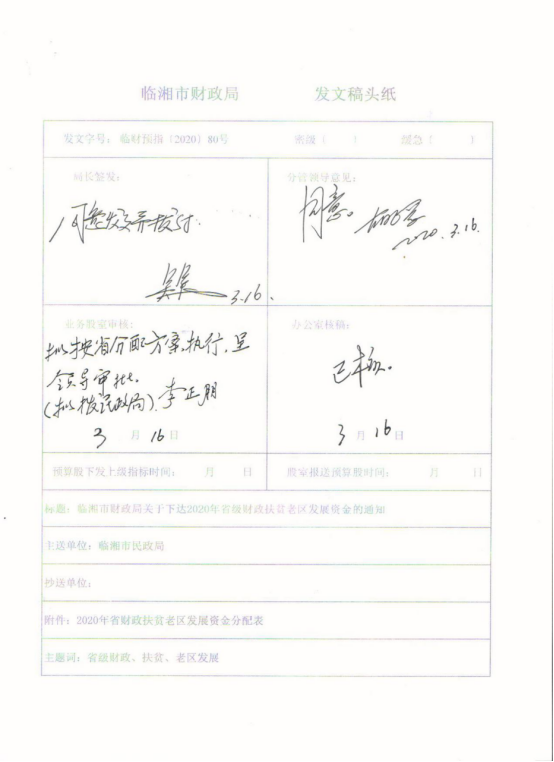 临湘市财政局 发文稿头纸
发文字号：临财预指〔2020〕80号 密级（ ） 缓急（ ）
局长签发： 分管领导意见：
同意
3.16.
同意。
2020.3.16.
业务股室审核： 办公室核稿：
拟按省分配方案执行，呈
领导审批。
(拟拨民政局). 李正朋
3月16日
已核。
3月16日
预算股下发上级指标时间： 月 日 股室报送预算股时间： 月 日
标题：临湘市财政局关于下达2020年省级财政扶贫老区发展资金的通知
主送单位：临湘市民政局
抄送单位：
附件：2020年省财政扶贫老区发展资金分配表
主题词：省级财政、扶贫、老区发展